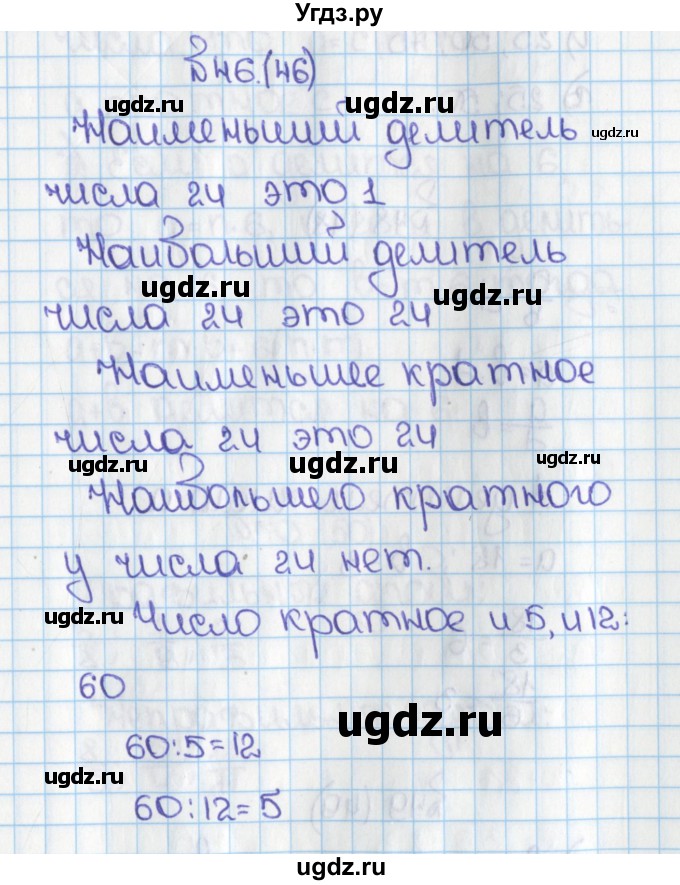 Угдз.ру
№46.(46)
Наименьший делитель
числа 24 это 1
Наибольший делитель
числа 24 это 24
Наименьшее кратное
числа 24 это 24
Наибольшего кратного
у числа 24 нет.
Число кратное и 5, и 12:
60
60:5=12
60:12=5
ugdz.ru
ugdz.ru
ugdz.ru
ugdz.ru
ugdz.ru
ugdz.ru
ugdz.ru
ugdz.ru
ugdz.ru
ugdz.ru
ugdz.ru
ugdz.ru